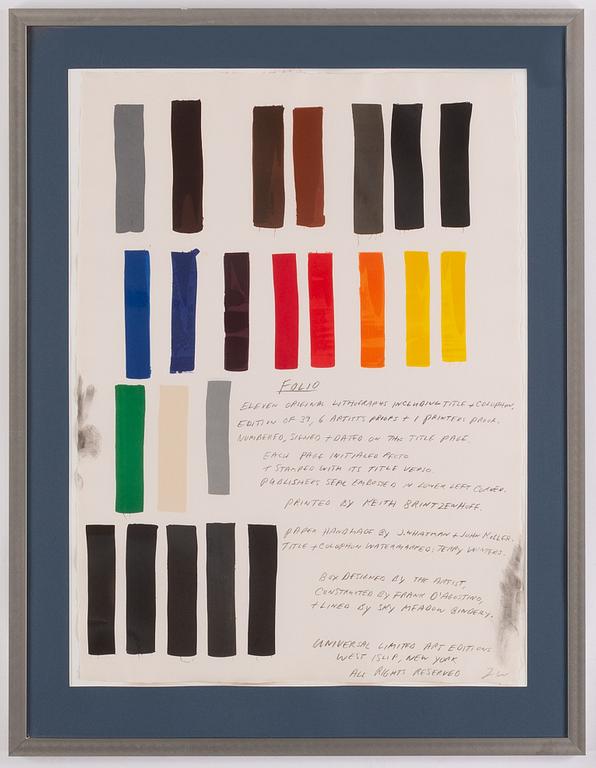 FOLIO
ELEVEN ORIGINAL LITHOGRAPHS INCLUDING TITLE + COLOPHON,
EDITION OF 39, 6 ARTISTS PROOFS + 1 PRINTERS PROOF.
NUMBERED, SIGNED + DATED ON THE TITLE PAGE.
EACH PAGE INITIALED RECTO
+ STAMPED WITH ITS TITLE VERSO.
PUBLISHERS SEAL EMBOSED IN LOWER LEFT CORNER.
PRINTED BY KEITH BRINTZENHOFF.
PAPER HANDMADE BY J. WHATMAN + JOHN KOLLER.
TITLE + COLOPHON WATERMARKED: TERRY WINTERS.
BOX DESIGNED BY THE ARTIST,
CONSTRUCTED BY FRANK D'AGOSTINO,
+ LINED BY SKY MEADOW BINDERY.
UNIVERSAL LIMITED ART EDITIONS
WEST ISLIP, NEW YORK
ALL RIGHTS RESERVED